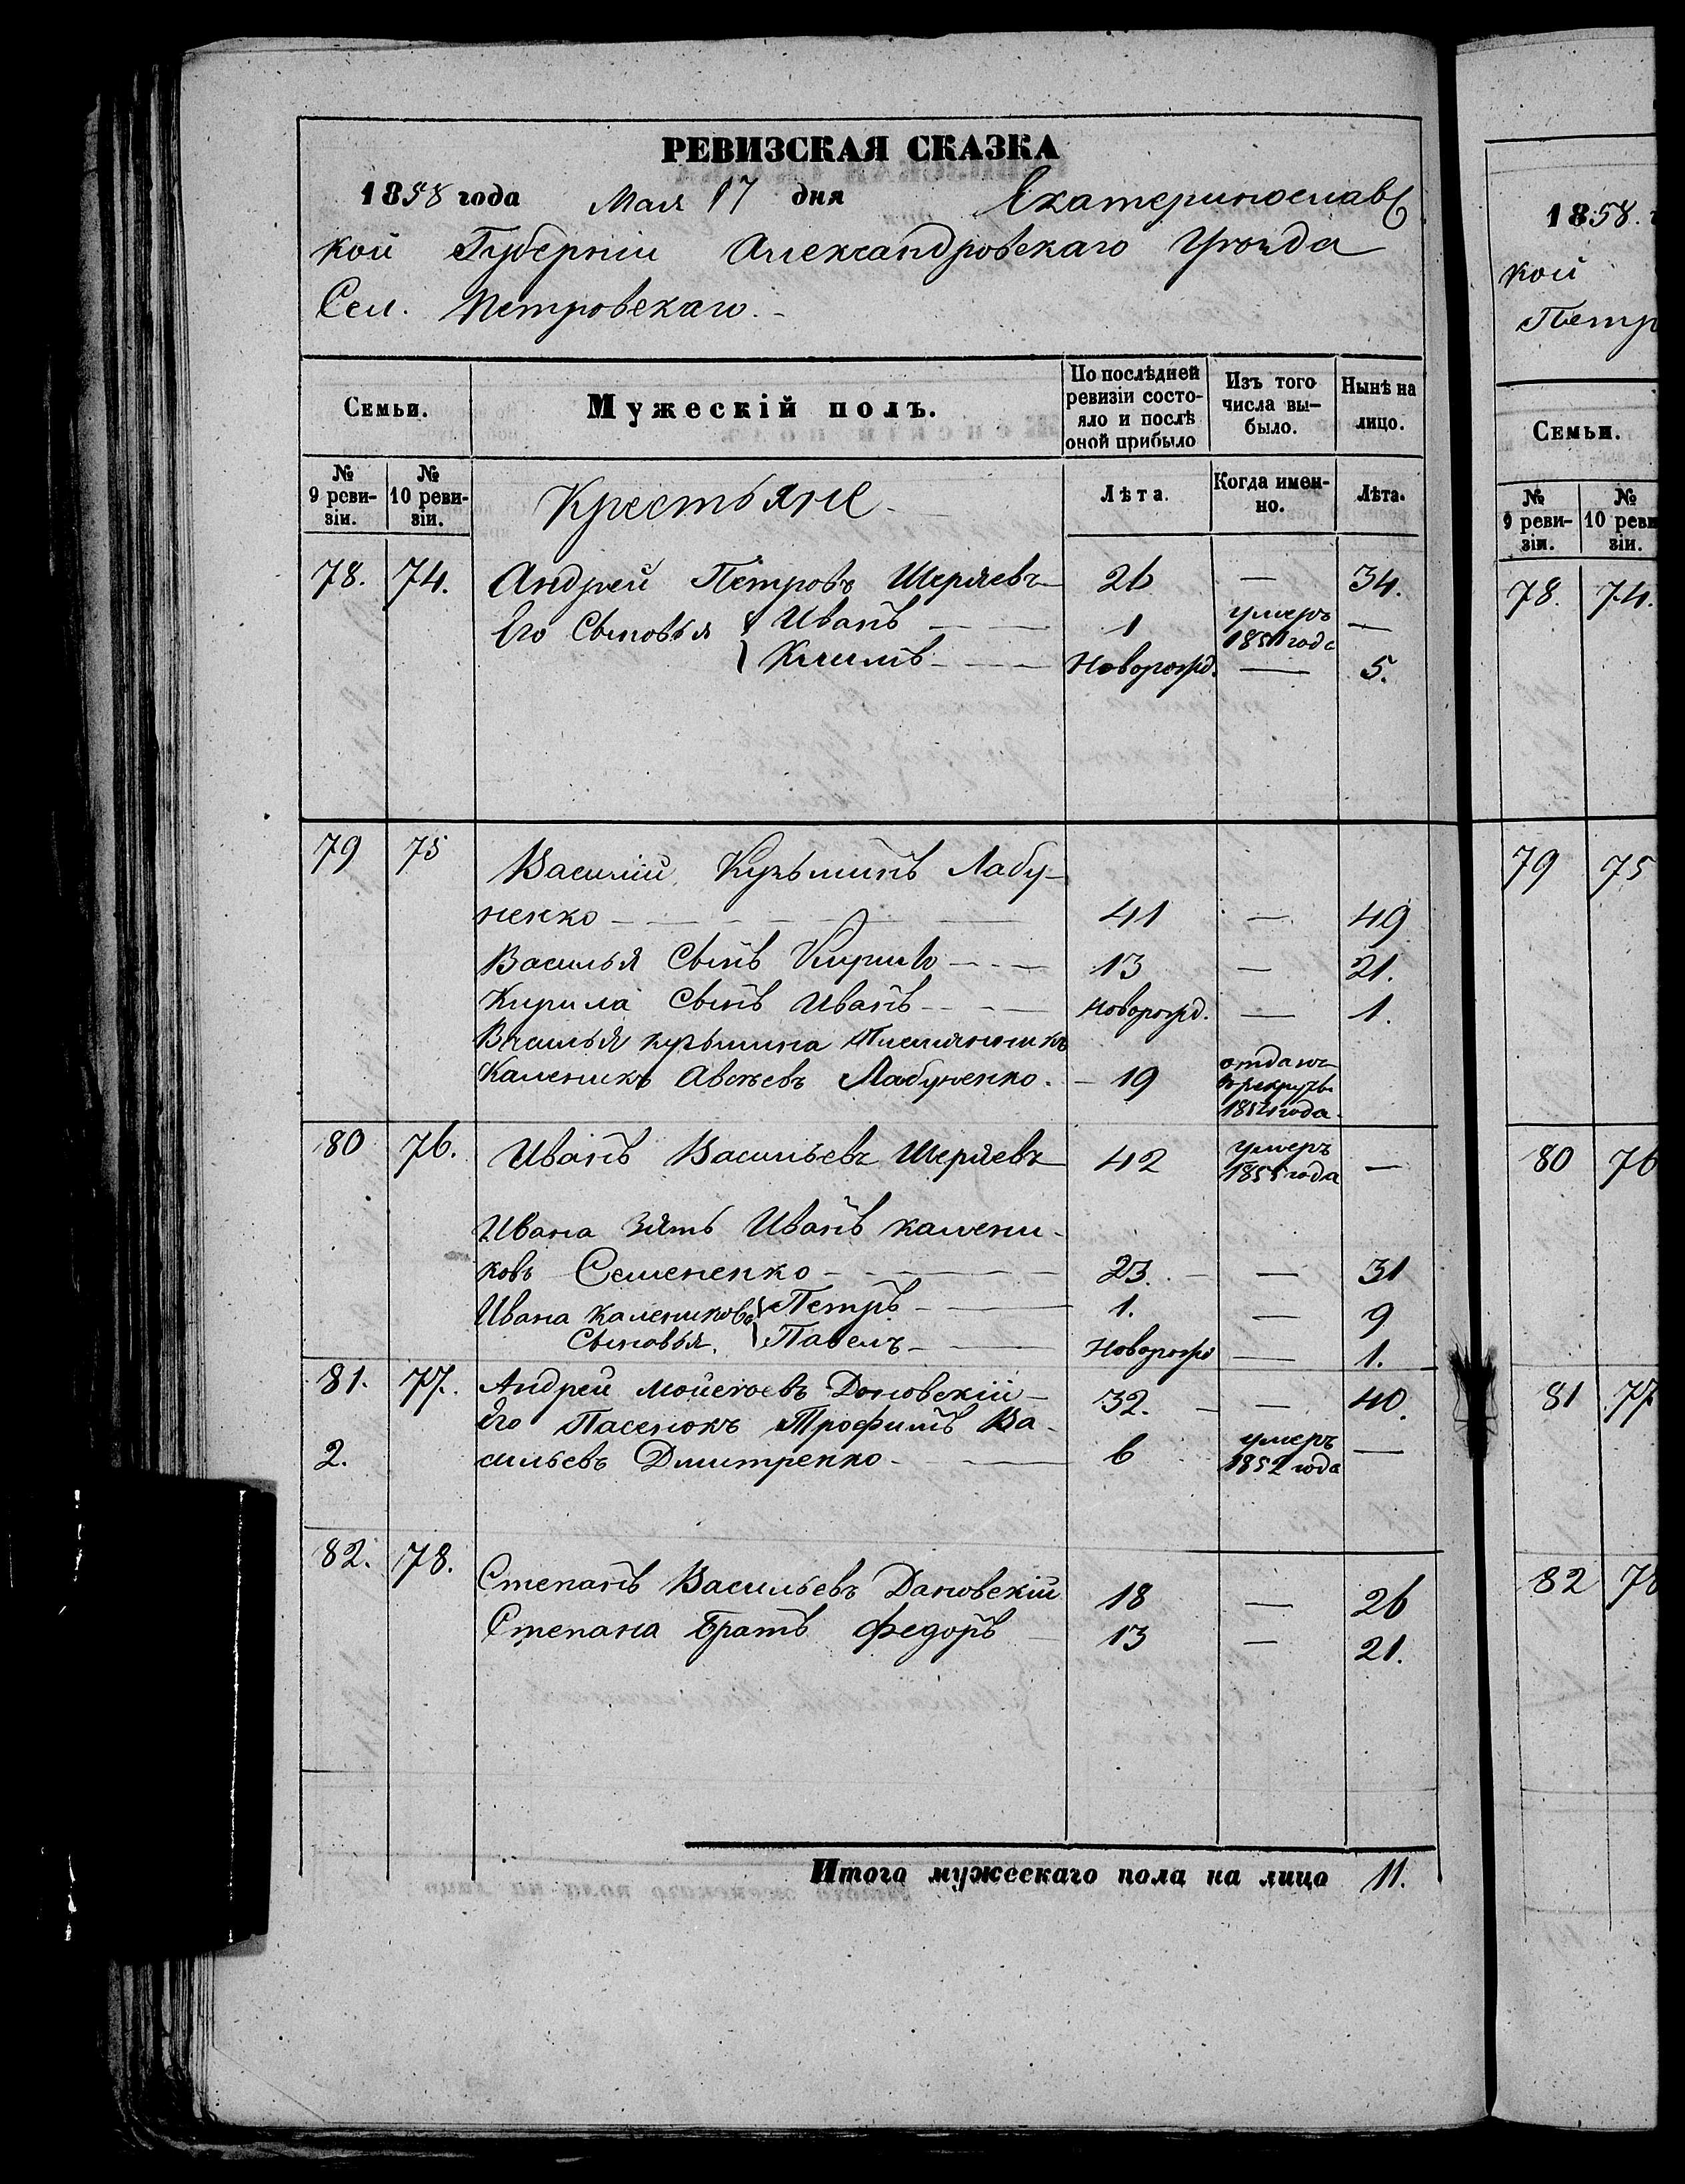 РЕВИЗСКАЯ СКАЗКА
1858 года Мая 17 дня Екатеринославс
кой Губерніи Александровскаго Уѣзда
Сел. Петровскаго.
Семьи. Мужескій полъ. По послѣдней ревизіи состо- яло и послѣ оной прибыло Изъ того числа вы- было. Нынѣ на лицо.
№ 9 реви- зіи. № 10 реви- зіи. Крестьяне Лѣта. Когда имен- но. Лѣта.
78. 74. Андрей Петровъ Шеряевъ 26 — 34.
Его Сыновья Иванъ 1 умеръ 1851 года —
Климъ Новорожд. — 5.
79 75 Василій Кузьминъ Лабу-
ненко 41 — 49
Василья Сынъ Кирило 13 — 21.
Кирила Сынъ Иванъ Новорожд. — 1.
Василья Кузьмина Племянникъ
Каленикъ Авсѣевъ Лабуненко. 19 отданъ в рекруты 1854 года
80 76. Иванъ Васильевъ Шеряевъ 42 умеръ 1855 года —
Ивана Зять Иванъ Калени-
ковъ Семененко 23. — 31
Ивана Каленикова Петръ 1. — 9
Сыновья. Павелъ Новорожд — 1.
81. 77. Андрей Мойсѣевъ Доновскій 32. — 40.
Его Пасенокъ Трофимъ Ва-
2. сильевъ Дмитренко 6 умеръ 1852 года —
82. 78. Степанъ Васильевъ Дановскій 18 — 26
Степана Братъ Федоръ 13 — 21.
Итого мужескаго пола на лицо 11.
1858.
кой
Петр
Семьи.
№ 9 реви- зіи. № 10 реви зіи.
78. 74.
79 75
80 76
81 77
82 78